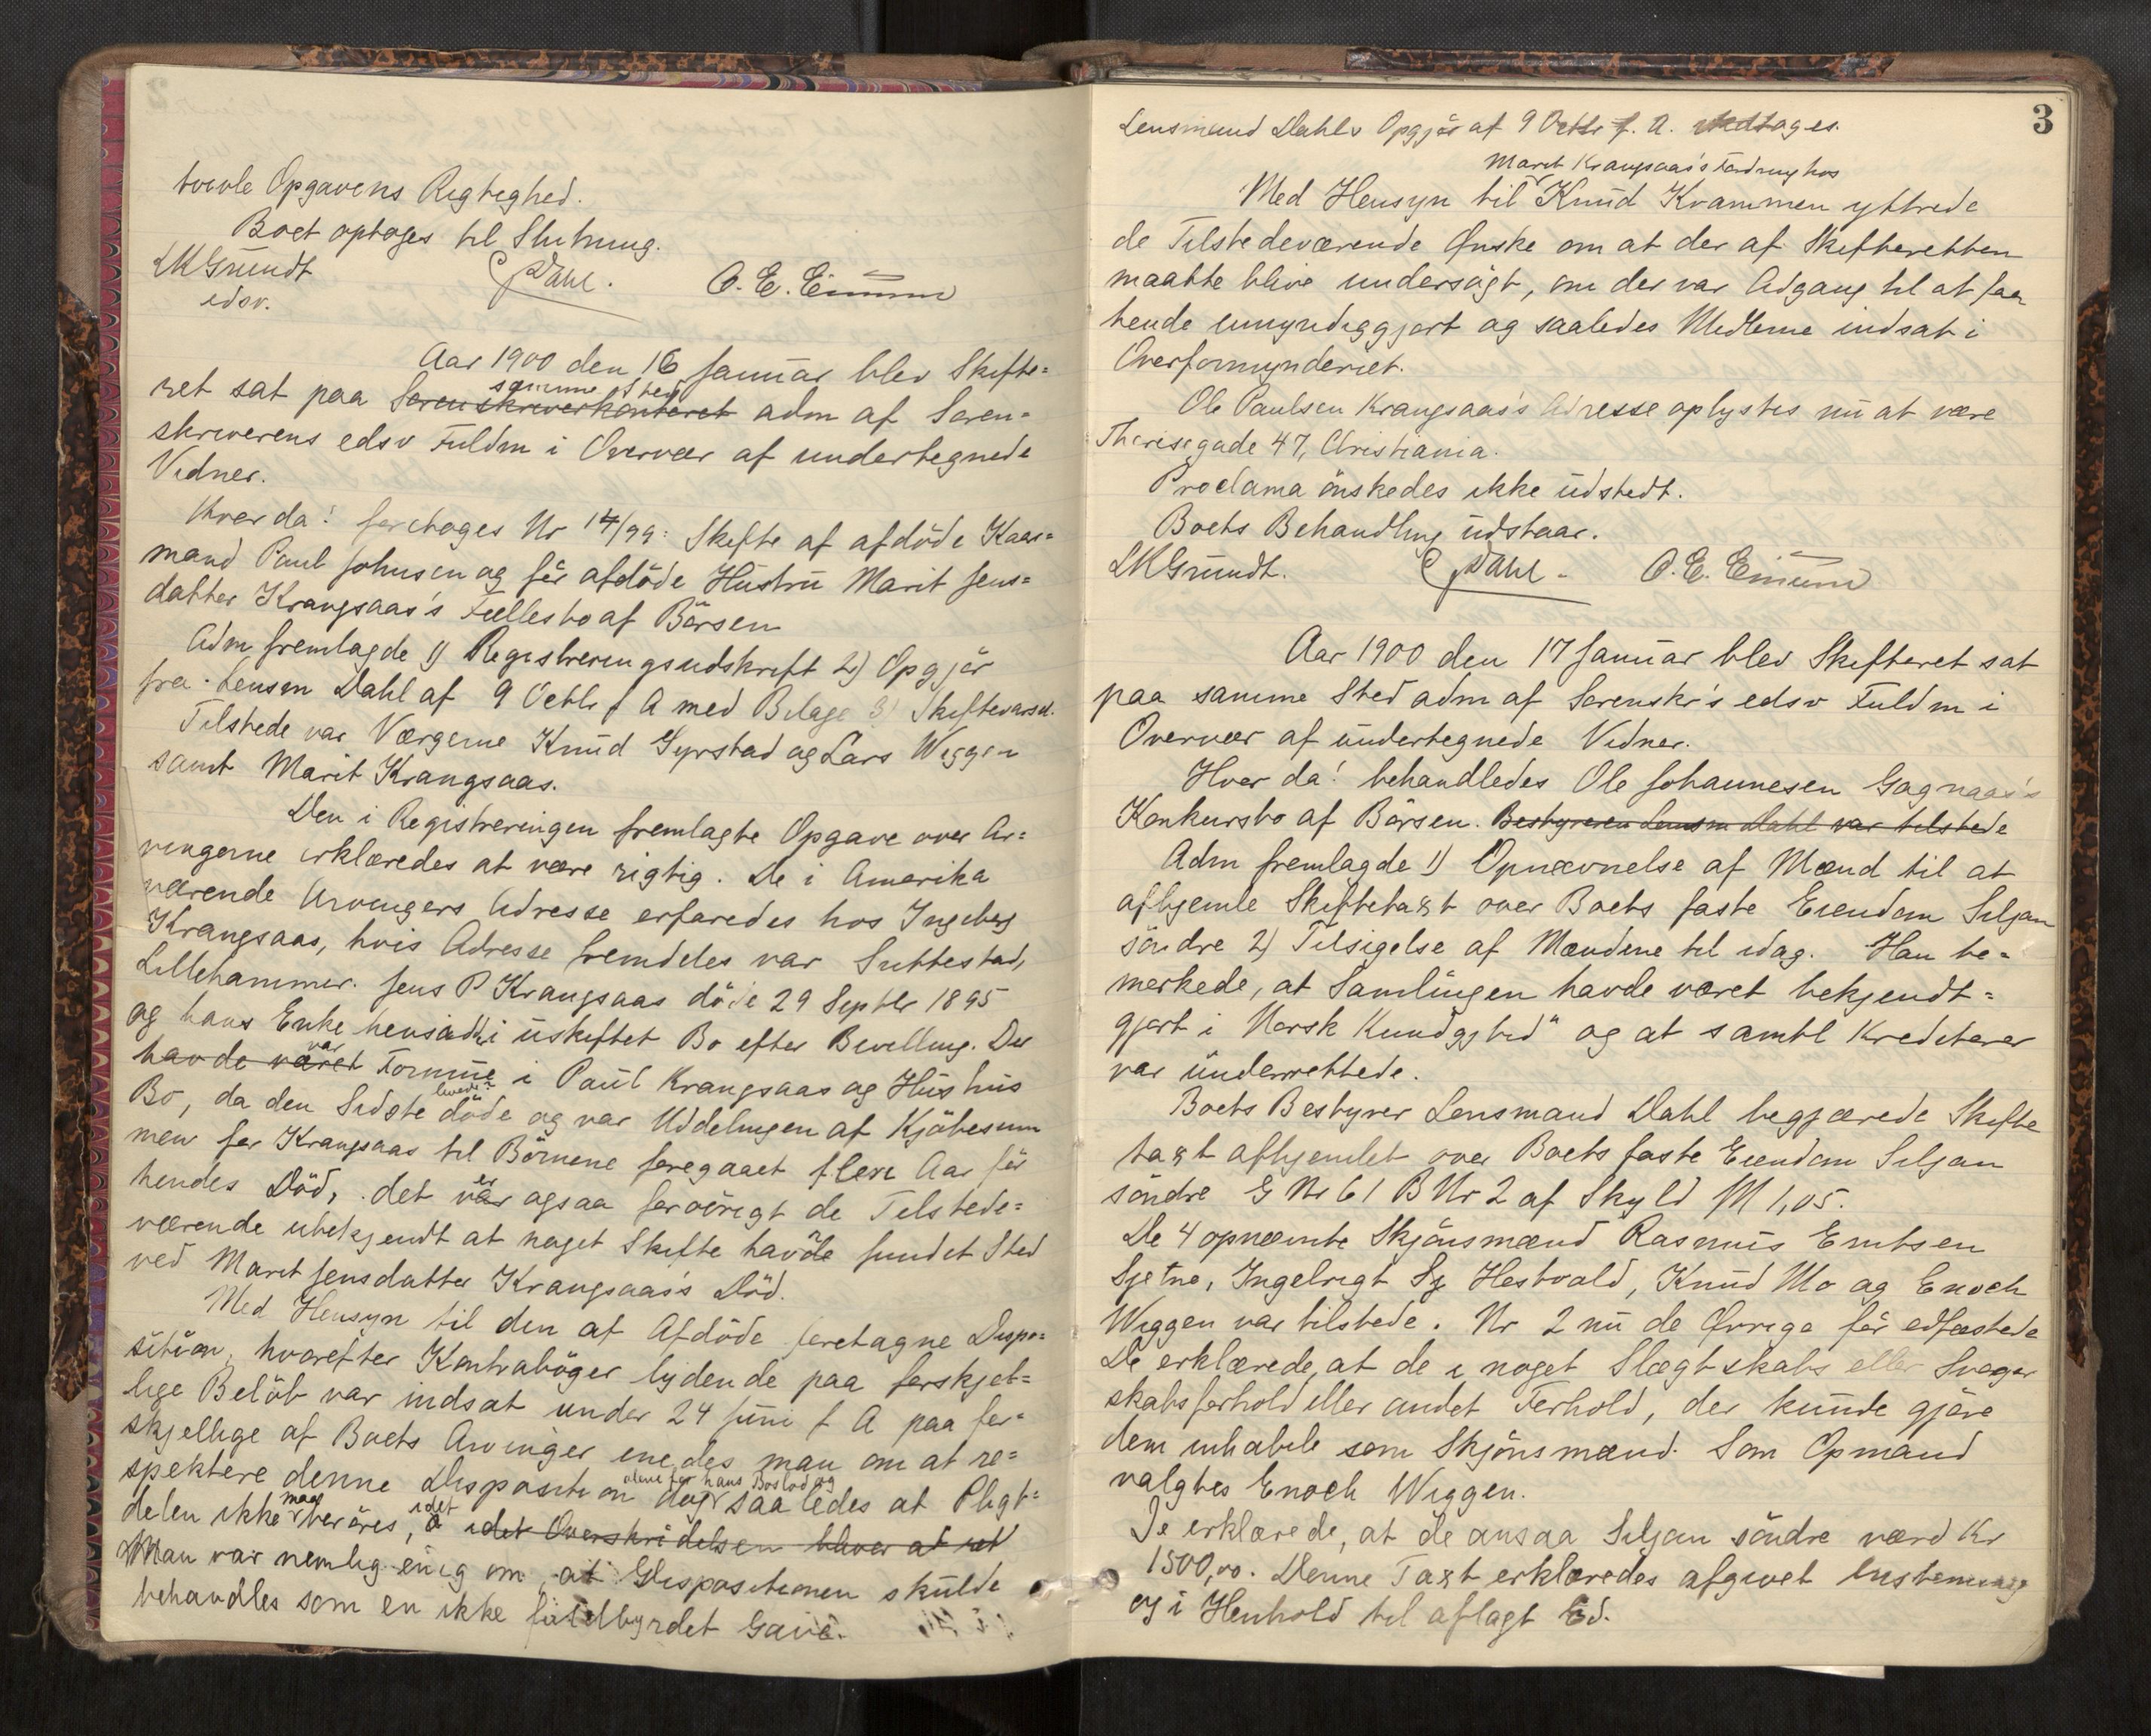 tvivle Opgavens Rigtighed.
Boet optages til Slutning.
LMGrundt
edsv.
Dahl.
O. E. Eimum
Aar 1900 den 16 Januar blev Skifte=
samme Sted
ret sat paa Sorenskriverkontoret adm af Soren=
skriverens edsv Fuldm i Overvær af undertegnede
Vidner.
Hvor da! foretoges Nr 14/99: Skifte af afdöde Kaar=
mand Paul Johnsen og för afdöde Hustru Marit Jens=
datter Krangsaas's Fællesbo af Börsen
Adm fremlagde 1) Registreringsudskrift 2) Opgjör
fra Lensm Dahl af 9 Octbr f A med Bilage 3) Skiftevarsel.
Tilstede var Værgerne Knud Gyrstad og Lars Wiggen
samt Marit Krangsaas.
Den i Registreringen fremlagte Opgave over Ar=
vingerne erklæredes at være rigtig. De i Amerika
værende Arvingers Adresse erfaredes hos Ingebrg
Krangsaas, hvis Adresse fremdeles var Suttestad,
Lillehammer. Jens P Krangsaas döde 29 Septbr 1895
og hans Enke hensidder i uskiftet Bo efter Bevilling. Der
var
havde været Formue i Paul Krangsaas og Hustrus
levede
Bo, da den Sidste döde og var Uddelingen af Kjöbesum
men for Krangsaas til Börnene foregaaet flere Aar för
er
hendes Död, det var ogsaa forövrigt de Tilstede=
værende ubekjendt at noget Skifte havde fundet Sted
ved Marit Jensdatter Krangsaas's Död.
Med Hensyn til den af Afdöde foretagne Dispo=
sition, hvorefter Kontraböger lydende paa forskjel=
lige Belöb var indsat under 24 Juni f A paa for=
skjellige af Boets Arvinger enedes man om at re=
alene for hans Boslod og
spektere denne Disposition dog saaledes at Pligt=
maa idet
delen ikke beröres, a idet Overskridelsen bliver at ret
Man var nemlig enig om, at Dispositionen skulde
behandles som en ikke fuldbyrdet Gave.
3
Lensmand Dahls Opgjör af 9 Octbr f. A. vedtages.
Marit Krangsaas's Fordring hos
Med Hensyn til Knud Krammen yttrede
de Tilstedeværende Ønske om at der af Skifteretten
maatte blive undersögt, om der var Adgang til at faa
hende umyndiggjort og saaledes Midlerne indsat i
Overformynderiet.
Ole Paulsen Krangsaas's Adresse oplystes nu at være
Therisegade 47, Christiania.
Proclama önskedes ikke udstedt.
Boets Behandling udstaar.
LMGrundt.
Dahl.
O. E. Eimum
Aar 1900 den 17 Januar blev Skifteret sat
paa samme Sted adm af Sorenskr's edsv Fuldm i
Overvær af undertegnede Vidner.
Hvor da! behandledes Ole Johannesen Gagnaas's
Konkursbo af Börsen. Bestyreren Lensm Dahl var tilstede
Adm fremlagde 1) Opnævnelse af Mænd til at
afhjemle Skiftetaxt over Boets faste Eiendom Siljan
söndre 2) Tilsigelse af Mændene til idag. Han be=
merkede, at Samlingen havde været bekjendt=
gjort i Norsk Kundgj tid" og at samtl Kreditorer
var underrettede.
Boets Bestyrer Lensmand Dahl begjærede Skifte
taxt afhjemlet over Boets faste Eiendom Siljan
söndre G Nr 61 B Nr 2 af Skyld M 1,05.
De 4 opnævnte Skjönsmænd Rasmus Erntsen
Sjetne, Ingebrigt Sj Hestvold, Knud Mo og Enoch
Wiggen var tilstede. Nr 2 nu de Øvrige för edfæstede
De erklærede, at de i noget Slægtskabs eller Svoger
skabsforhold eller andet Forhold, der kunde gjöre
dem inhabile som Skjönsmænd. Som Opmand
valgtes Enoch Wiggen.
De erklærede, at de ansaa Siljan söndre værd Kr
1500,00. Denne Taxt erklæredes afgivet enstemmig
og i Henhold til aflagt Ed.